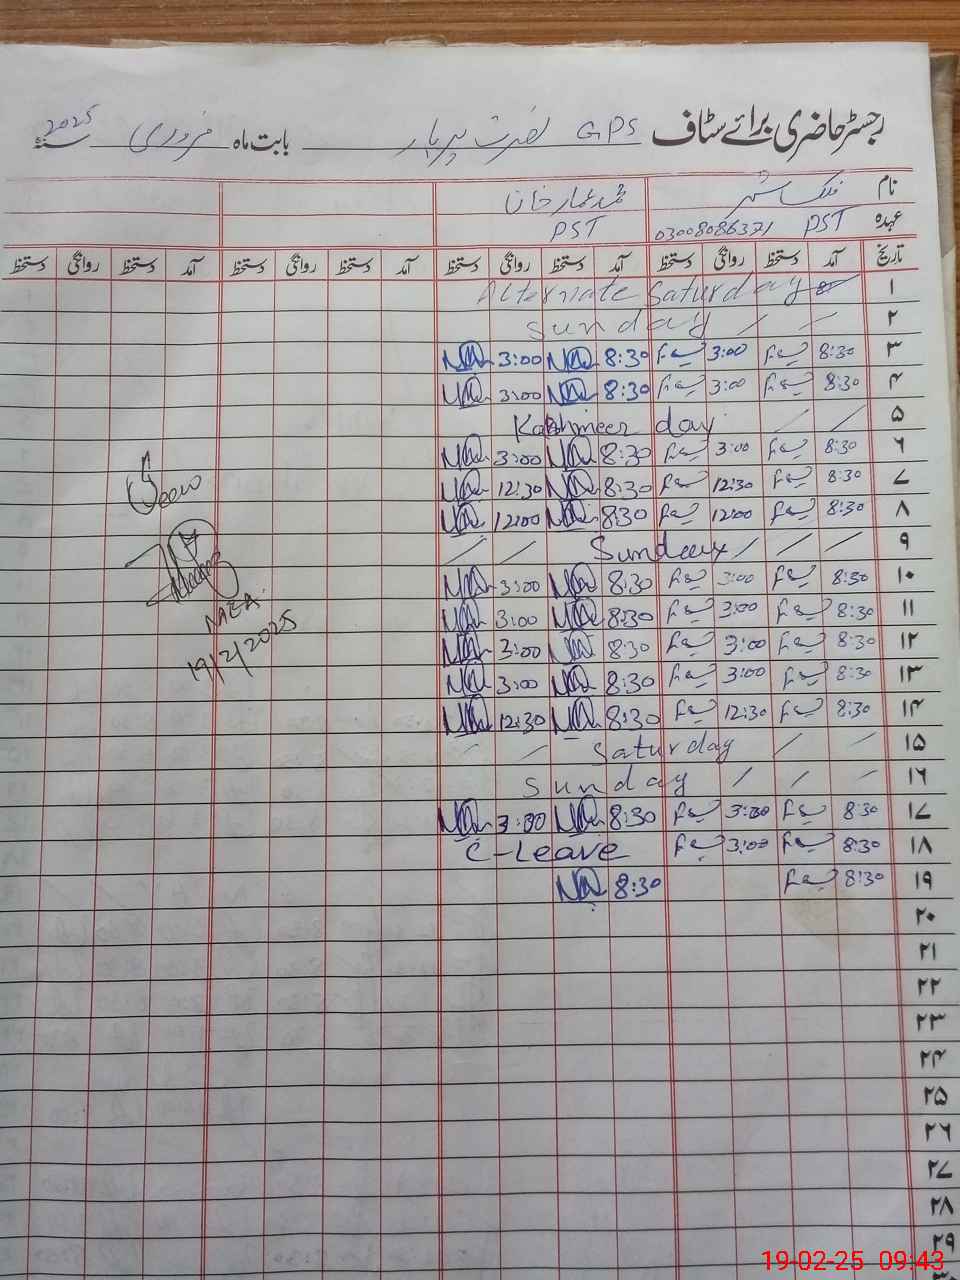 رجسٹر حاضری برائے سٹاف GPS نصرت پربار بابت ماہ فروری سنہ 2025
نام فلک شیر محمد عمار خان
عہدہ PST 03008086371 PST
تاریخ آمد دستخط روانگی دستخط آمد دستخط روانگی دستخط آمد دستخط روانگی دستخط آمد دستخط روانگی دستخط
۱ Alternate Saturday
۲ Sunday
۳ 8:30 3:00 8:30 3:00
۴ 8:30 3:00 8:30 3:00
۵ Kashmeer day
۶ 8:30 3:00 8:30 3:00
۷ 8:30 12:30 8:30 12:30
۸ 8:30 12:00 8:30 12:00
۹ Sunday
۱۰ 8:30 3:00 8:30 3:00
۱۱ 8:30 3:00 8:30 3:00
۱۲ 8:30 3:00 8:30 3:00
۱۳ 8:30 3:00 8:30 3:00
۱۴ 8:30 12:30 8:30 12:30
۱۵ Saturday
۱۶ Sunday
۱۷ 8:30 3:00 8:30 3:00
۱۸ 8:30 3:00 C-Leave
۱۹ 8:30 8:30
۲۰
۲۱
۲۲
۲۳
۲۴
۲۵
۲۶
۲۷
۲۸
۲۹
۳۰
Seen
19/2/2025
19-02-25 09:43